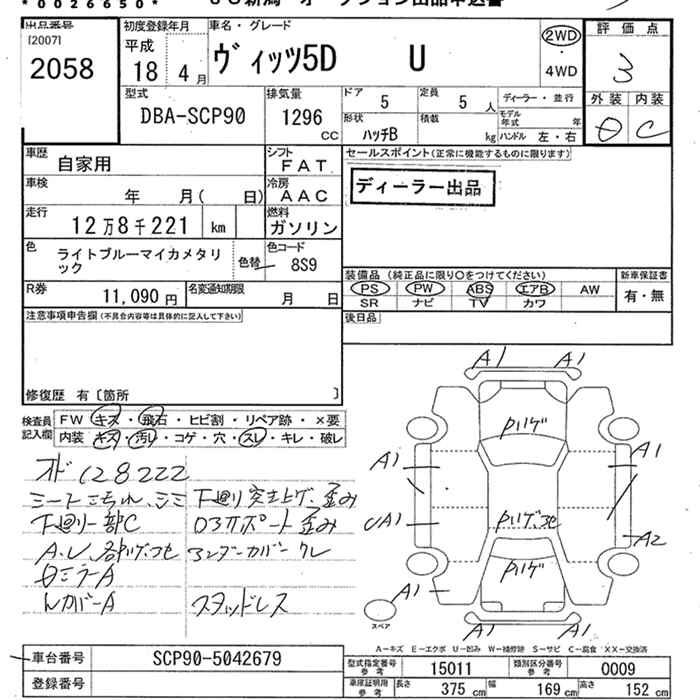 *0026650*
出品番号
[2007]
2058
初度登録年月
平成
18 4 月
車名・グレード
ヴィッツ5D U
2WD
・
4WD
評価点
3
型式
DBA-SCP90
排気量
1296
cc
ドア
5
定員
5 人
ディーラー・並行
モデル年式 年
形状
ハッチB
積載
kg
ハンドル 左・右
外装 内装
C
車歴
自家用
シフト
FAT
車検
年 月( 日)
冷房
AAC
走行
12万8千221 km
燃料
ガソリン
色
ライトブルーマイカメタリ
ック
色替
色コード
8S9
R券
11,090 円
名変通知期限
月 日
セールスポイント(正常に機能するものに限ります)
ディーラー出品
装備品(純正品に限り○をつけてください)
新車保証書
PS PW ABS エアB AW
SR ナビ TV カワ
有・無
後日品
注意事項申告欄(不具合内容等は具体的に記入して下さい)
修復歴 有〔箇所 〕
検査員
記入欄
FW キズ・飛石・ヒビ割・リペア跡・×要
内装 キズ・汚レ・コゲ・穴・スレ・キレ・破レ
128222
下廻り突き上げ、歪み
下廻り一部C
歪み
アンダーカバーワレ
ミラーA
カバーA
スタッドレス
A1 A1
ハゲ
A1 A1
UA1
A2
ハゲ
A1
スペア
A-キズ E-エクボ U-凹み W-補修跡 S-サビ C-腐食 XX-交換済
車台番号
SCP90-5042679
登録番号
型式指定番号
参考
15011
類別区分番号
参考
0009
車庫証明用
参考
長さ 375 cm 幅 169 cm 高さ 152 cm